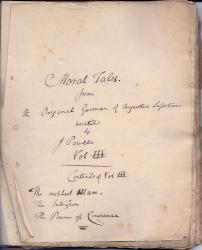 Moral Tales.
from
the Original German of Augustus Lafontaine
by
J Powell
Vol III
Contents of Vol III
The noblest Man.
The
The Power of